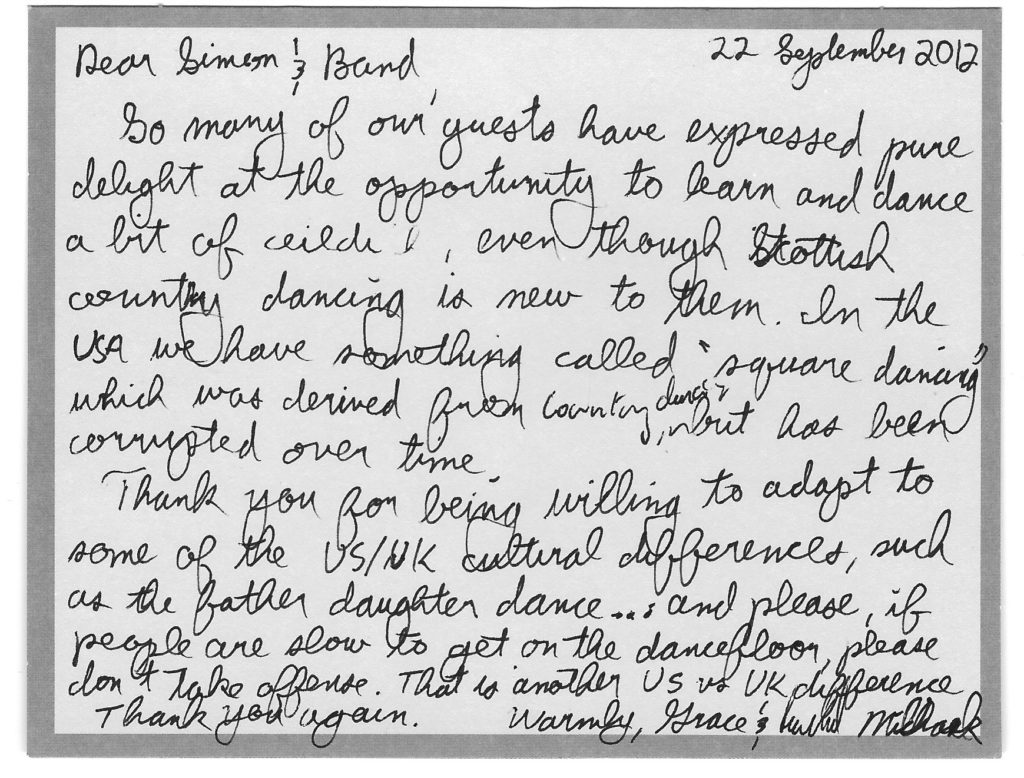 Dear Simon & Band, 22 September 2012
So many of our guests have expressed pure
delight at the opportunity to learn and dance
a bit of , even though Scottish
country dancing is new to them. In the
USA we have something called "square dancing"
which was derived from country dancing, but has been
corrupted over time.
Thank you for being willing to adapt to
some of the US/UK cultural differences, such
as the father daughter dance...; and please, if
people are slow to get on the dancefloor, please
don't take offense. That is another US vs UK difference
Thank you again. Warmly, Grace &